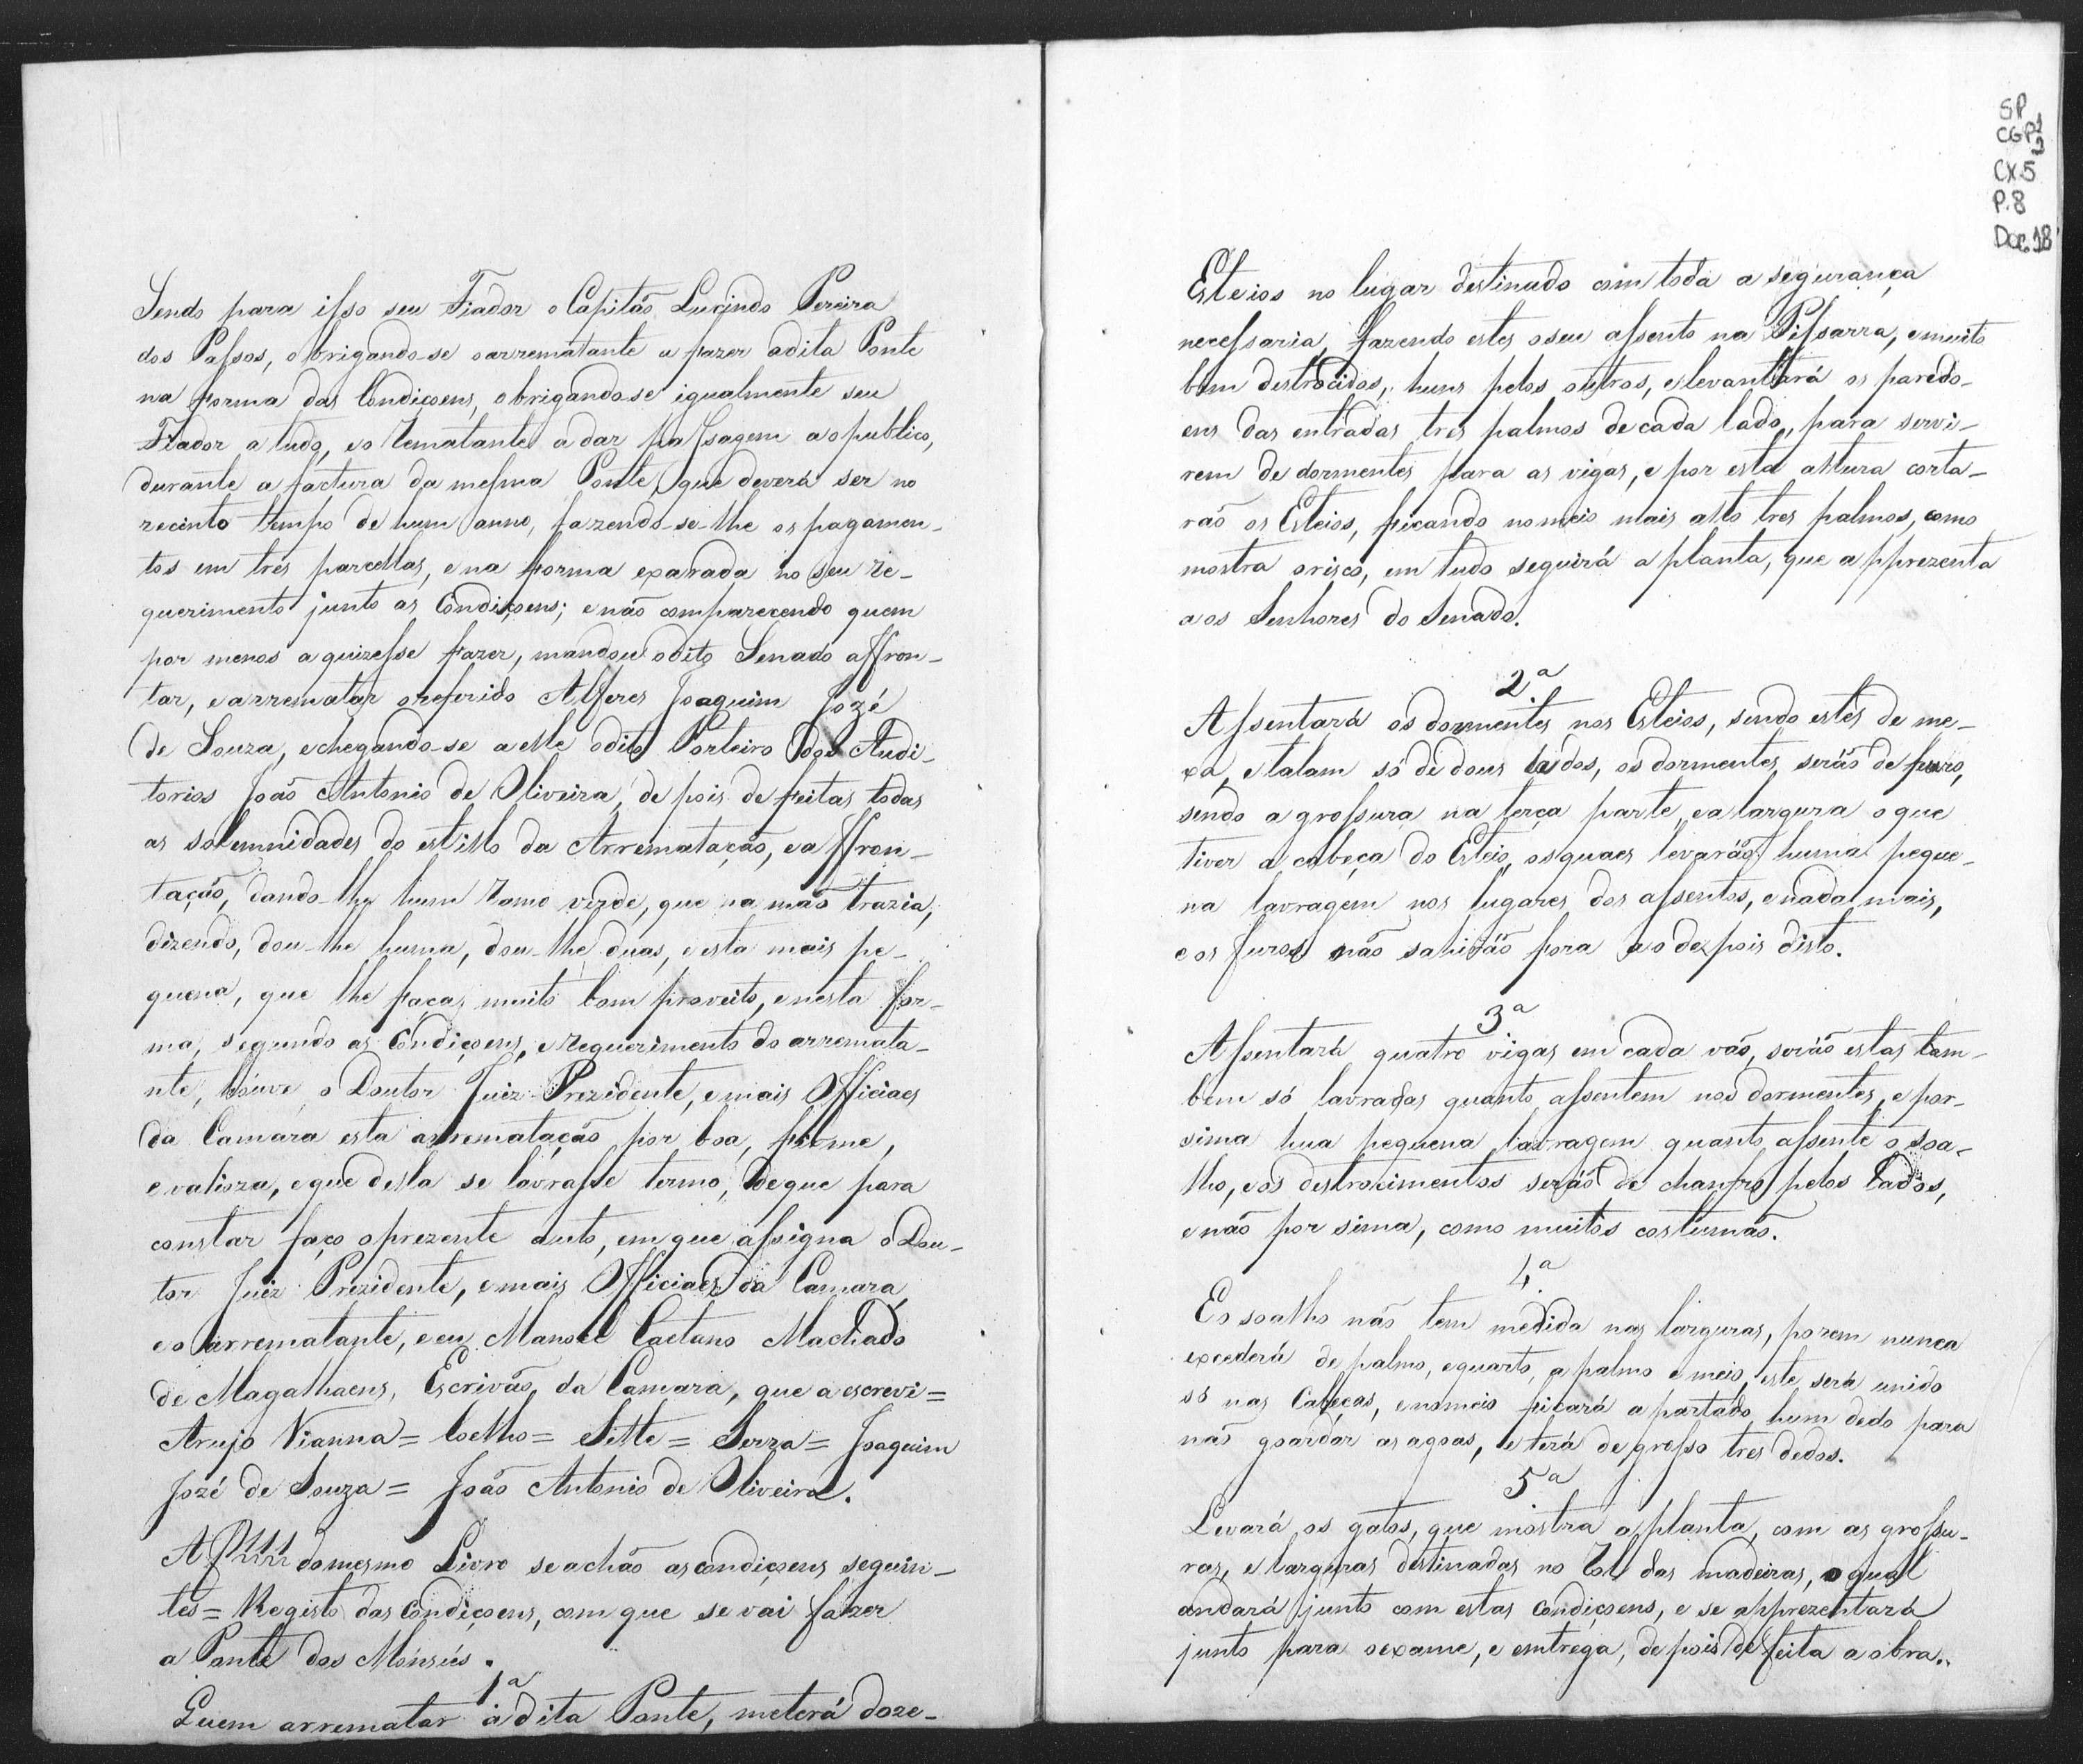 Sendo para isso seu Fiador o Capitão Lucindo Pereira
dos Passos, obrigando-se oarrematante a fazer adita Ponte
na forma das Condiçoens, obrigandose igualmente seu
Fiador a tudo, eo Rematante a dar passagem aopublico,
durante a factura da mesma Ponte, que deverá ser no
recinto tempo de hum anno, fazendo-se-lhe os pagamen-
tos em três parcellas, ena forma exarada no seu re-
querimento junto as Condiçoens; enão comparecendo quem
por menos aquizesse fazer, mandou odito Senado affron-
tar, earrematar oreferido Alferes Joaquim Jozé
de Souza, echegando-se aelle odito Porteiro dos Audi-
torios João Antonio de Oliveira, depois de feitas todas
as solemnidades do estillo da Arrematação, eaffron-
tação, dando-lhe hum ramo verde, que na mão trazia,
dizendo, dou-lhe huma, dou-lhe duas, eesta mais pe-
quena, que lhe faça muito bom proveito, enesta for-
ma, segundo as Condiçoens, eRequerimento do arremata-
nte, houve o Doutor Juiz Prezidente, emais Officiaes
da Camara esta arrematação por boa, firme,
evalioza, eque della se lavrasse termo, deque para
constar faço oprezente auto, emque assigna o Dou-
tor Juiz Prezidente, emais Officiaes da Camara,
eo arrematante, eeu Manoel Caetano Machado
de Magalhaens, Escrivão da Camara, que a escrevi=
Arujo Vianna= Coelho= Sette= Serra= Joaquim
Jozé de Souza= João Antonio de Oliveira.
A f 111 domesmo Livro seachão ascondiçoens seguin-
tes= Registo das Condiçoens, comque se vai fazer
a Ponte dos Monsús.
1ª
Quem arrematar adita Ponte, meterá doze-
SP
CGP1
3
CX.5
P.8
Doc.18
Esteios no lugar destinado com toda a segurança
necessaria, fazendo estes oseu assento na Pissarra, emuito
bem destrocidos, huns pelos outros, elevantará os paredo-
ens das entradas três palmos decada lado, para servi-
rem de dormentes para as vigas, e por esta altura corta-
rão os Esteios, ficando nomeio mais alto tres palmos, como
mostra orisco, em tudo seguirá aplanta, que apprezenta
aos Senhores do Senado.
2ª
Assentará os dormentes nos Esteios, sendo estes de me-
xa, etalam só de dous lados, os dormentes serão de furo,
sendo a grossura na terça parte, ealargura oque
tiver a cabeça do Esteio, osquaes levarão huma peque-
na lavragem nos lugares dos assentos, enada mais,
eos furos não sahirão fora ao dezpois disto.
3ª
Assentará quatro vigas em cada vão, serão estas tam-
bem só lavradas quanto assentem nos dormentes, e por-
sima hua pequena lavragem quanto assente o soa-
lho, eos destrocimentos serão de chanfro pelos lados,
enão por sima, como muitos costumão.
4ª
Eo soalho não tem medida nas larguras, porem nunca
excederá de palmo, equarto, a palmo emeio, este será unido
só nas Cabeças, enomeio ficará apartado hum dedo para
não goardar asagoas, e terá degrosso tres dedos.
5ª
Levará os gatos, que mostra aplanta, com as grossu-
ras, elarguras destinadas no Rol das madeiras, oqual
andará junto com estas Condiçoens, e se apprezentará
junto para oexame, e entrega, depois de feita a obra.